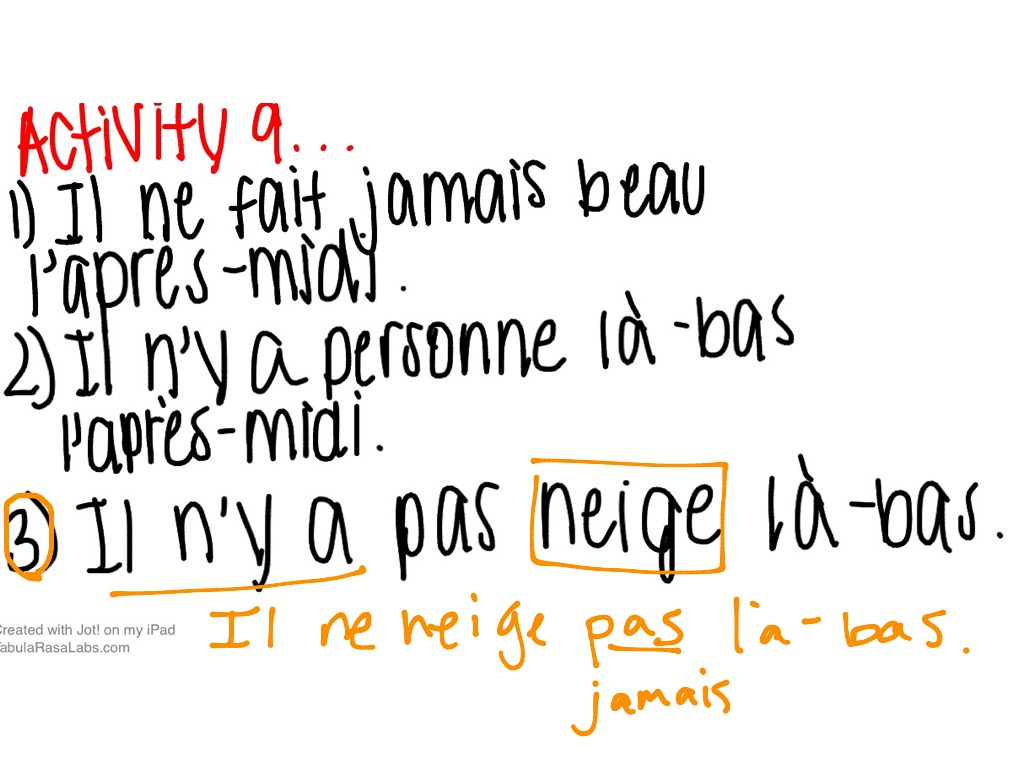 Activity 9...
1) Il ne fait jamais beau
l'après-midi.
2) Il n'y a personne là-bas
l'après-midi.
3) Il n'y a pas neige là-bas.
Il ne neige pas là-bas.
jamais
Created with Jot! on my iPad
TabulaRasaLabs.com